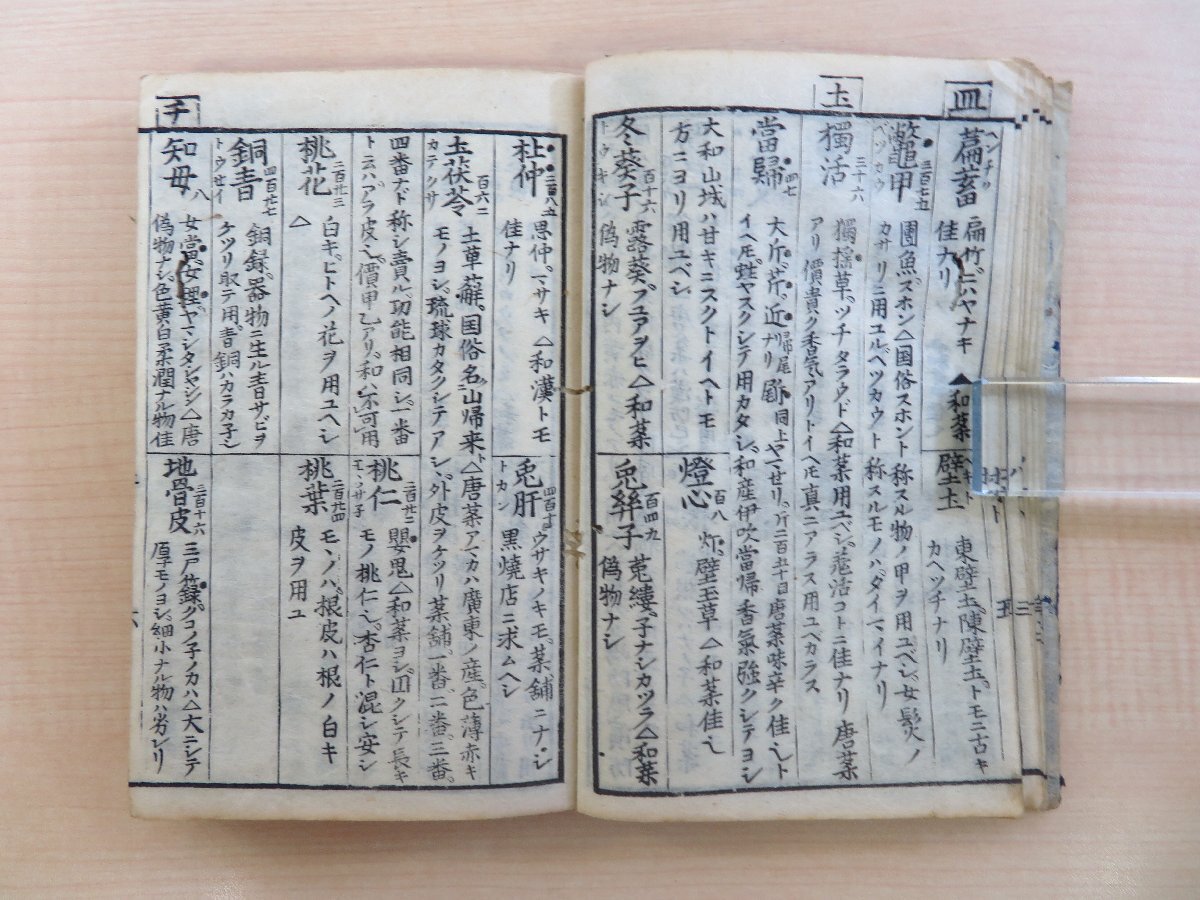 皿
萹蓄 ヘンチク 扁竹。ニハヤナキ ▲和菜
佳ナリ
壁土 ヘキト 東壁土。陳壁土。トモニ古キ
カヘツチナリ
鼈甲 ベツカウ 二百七五 團魚。スホン△国俗スホント称スル物ノ甲ヲ用ユベシ。女髪ノ
カサリニ用ユルベツカウト称スルモノハ。ダイマイナリ
土
獨活 三十六 獨揺草。ツチタラウド△和菜用ユベシ。羗活コトニ佳ナリ 唐菜
アリ 價貴ク香氣アリトイヘモ真ニアラス用ユベカラス
當歸 四七 大斤。芹。近ナリ
イヘモ。蛀ヤスクシテ用カタシ。和産伊吹當帰香氣強クシテヨシ
大和山城ハ甘キニスクトイヘトモ
方ニヨリ用ユベシ
燈心 百八 灯。壁玉草 △和菜佳シ
冬葵子 トウキシ 百十六 露葵。フユアヲヒ△和菜
偽物ナシ
兎絲子 百四九 菟縷。子ナシカツラ△和菜
偽物ナシ
杜仲 二百八五 思仲。マサキ △和漢トモ
佳ナリ
兎肝 トカン 四百十 ウサキノキモ。菜舗ニナシ
黒焼店ニ求ムヘシ
土茯苓 カテクサ 百六二 土草薢。国俗名山帰来ト△唐菜アマカハ廣東ノ産。色薄赤キ
モノヨシ。琉球カタクシテアシ。外皮ヲケツリ菜舗。一番。二番。三番。
四番ナド称シ賣ル。功能相同シ。一番
トニハアラ皮シ。價甲乙アリ。和ハ不可用
桃仁 二百廿二 嬰兒△和菜ヨシ。円クシテ長キ
モノ桃仁シ。杏仁ト混シ安シ
桃花 二百廿三 白キ。ヒトヘノ花ヲ用ユヘシ
△
桃葉 二百廿四 モンノハ。根皮ハ根ノ白キ
皮ヲ用ユ
銅青 トウセイ 四百廿七 銅録。器物ニ生ル青サビヲ
ケツリ取テ用青銅ハカラカ子シ
チ
知母 八 女當。女理。ヤマシ。タシャジ△唐
偽物ナシ色黄白柔潤ナル物佳
地骨皮 二百十六 三戸籙。クコノ子ノカハ△大ニシテ
厚キモノヨシ。細小ナル物ハ劣レリ